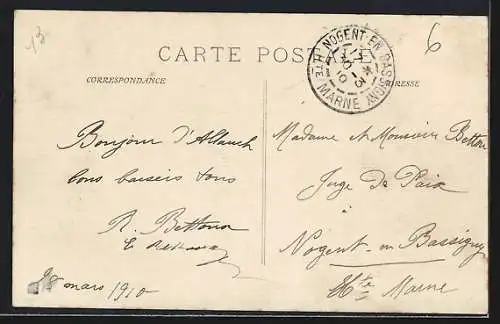 13
6
CARTE POST
CORRESPONDANCE
NOGENT-EN-BASSIGNY
HTE MARNE
Bonjour d'Allauch
bons baisers tous
R. Bettour
28 mars 1910
Madame et Monsieur Bettour
Juge De Paix
à
Nogent-en-Bassigny
Hte Marne